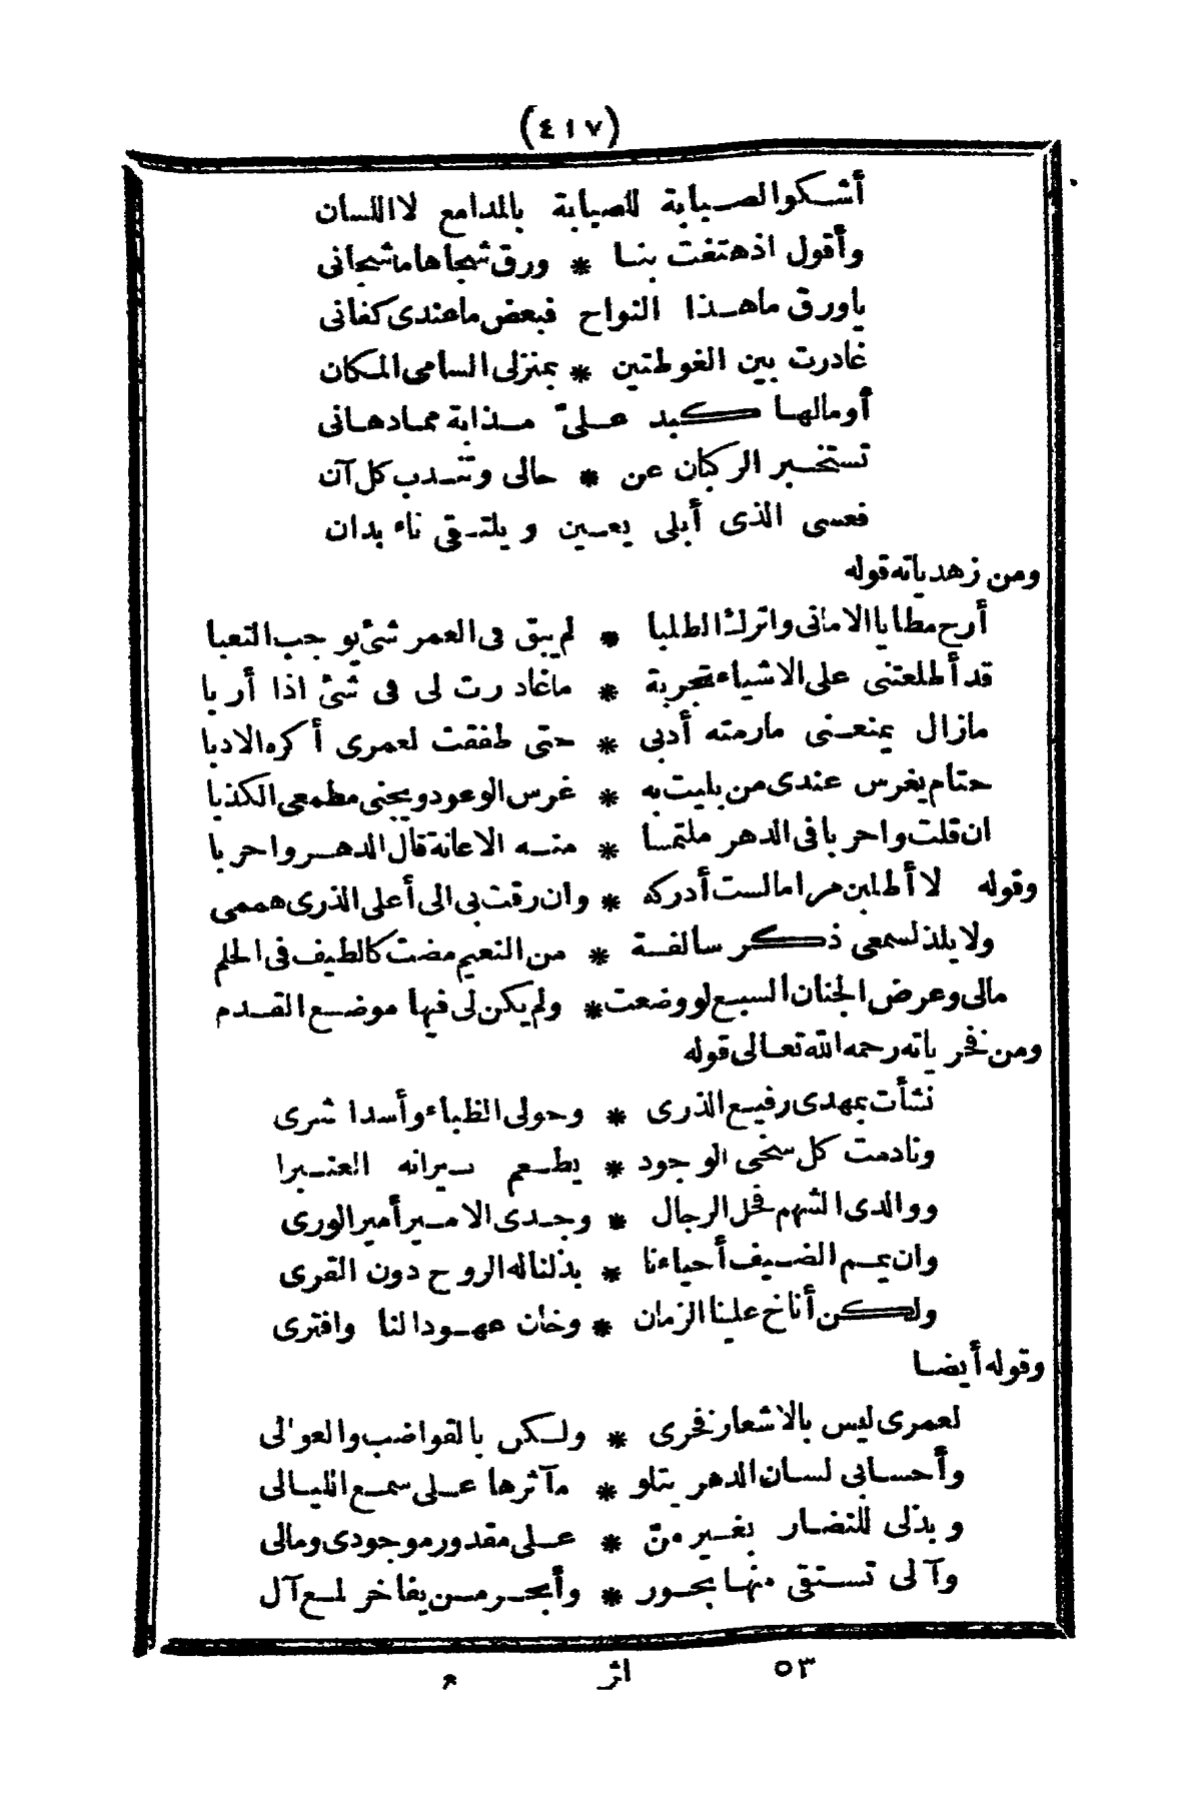 (٤١٧)
أشكوا الصبابة للصبابة بالمدامع لا اللسان
وأقول اذ هتفت بنا * ورق شجاها ما شجانى
ياورق ما هذا النواح فبعض ما عندى كفانى
غادرت بين الغوطتين * بمنزلى السامى المكان
أو مالها كبد علىّ مذابة مما دهانى
تستخبر الركبان عن * حالى وتندب كل آن
فعسى الذى أبلى يعين ويلتقى ناء بدان
ومن زهدياته قوله
أرح مطايا الامانى واترك الطلبا * لم يبق فى العمر شئ يوجب التعبا
قد أطلعتنى على الاشياء تجربة * ما غادرت لى فى شئ اذا أربا
مازال يمنعنى مارمته أدبى * حتى طفقت لعمرى أكره الادبا
حتام يغرس عندى من بليت به * غرس الوعود ويجنى مطمعى الكذبا
ان قلت واحربا فى الدهر ملتمسا * منه الاعانة قال الدهر واحربا
وقوله لا أطلبن مراما لست أدركه * وان رقت بى الى أعلى الذرى هممى
ولا يلذ لسمعى ذكر سالفة * من النعيم مضت كالطيف فى الحلم
مالى وعرض الجنان السبع لو وضعت * ولم يكن لى فيها موضع القدم
ومن فخرياته رحمه الله تعالى قوله
نشأت بمهدى رفيع الذرى * وحولى الظباء وأسدا شرى
ونادمت كل سخى الوجود * يطعم نيرانه العنبرا
ووالدى الشهم فحل الرجال * وجدى الامير أمير الورى
وان يمم الضيف أحياءنا * بذلنا له الروح دون القرى
ولكن أناخ علينا الزمان * وخان عهودا لنا وافترى
وقوله أيضا
لعمرى ليس بالاشعار فخرى * ولكن بالقواضب والعوالى
وأحسابى لسان الدهر يتلو * مآثرها على سمع الليالى
وبذلى للنضار بغير منّ * على مقدور موجودى ومالى
وآلى تستقى منها بحور * وأبحر من يفاخر لمع آل
٥٣ اثر م